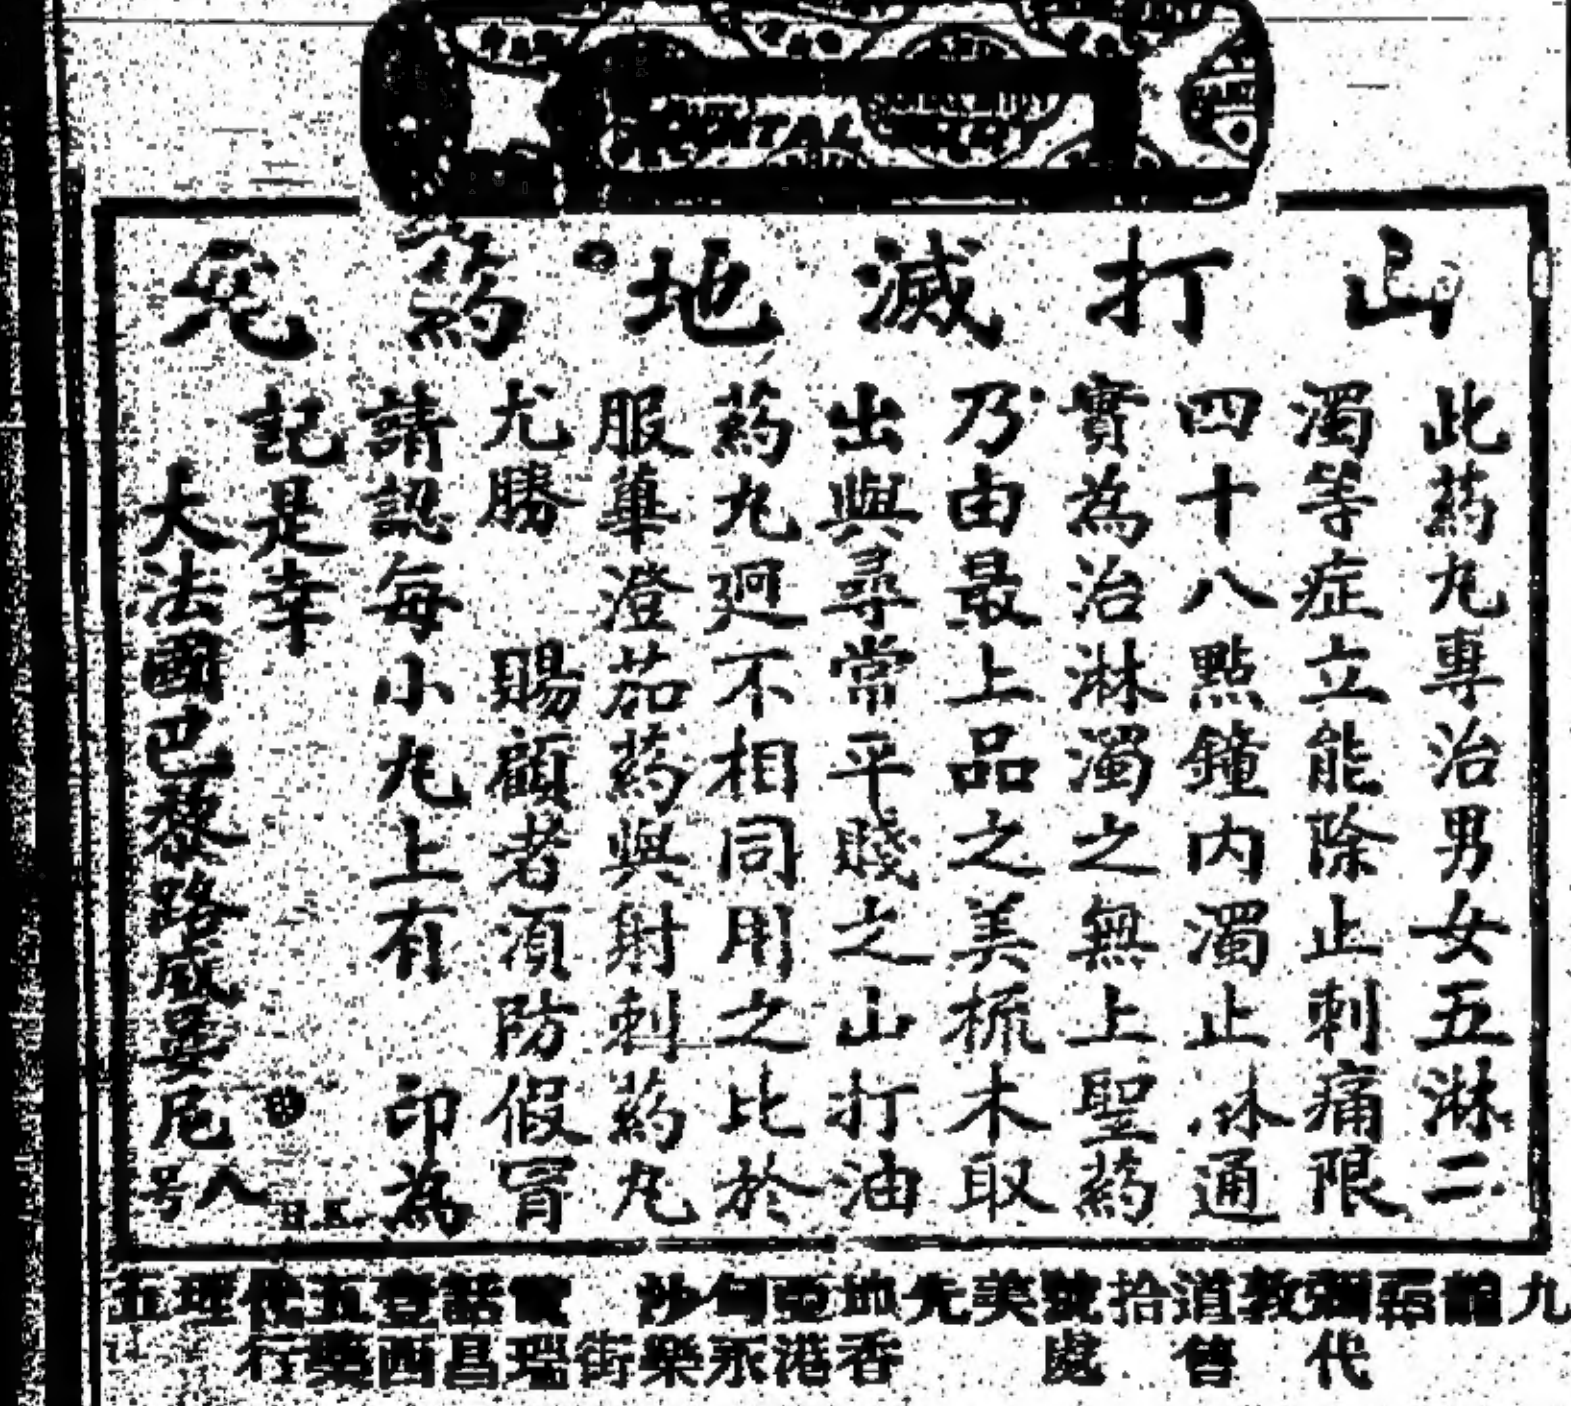 山打滅地藥丸
此药丸專治男女五淋二
濁等症立能除止刺痛限
四十八點鐘內濁止淋通
實為治淋濁之無上聖药
乃由最上品之美梹木取
出與尋常平賤之山打油
药丸廻不相同用之比於
服蓽澄茄药與射刺药丸
尤勝 賜顧者須防假冒
請認每小丸上有 印為
記是幸
大法國巴黎路威晏尼八号
九龍彌敦道拾號美
代售處
香港永樂街瑞昌西藥行